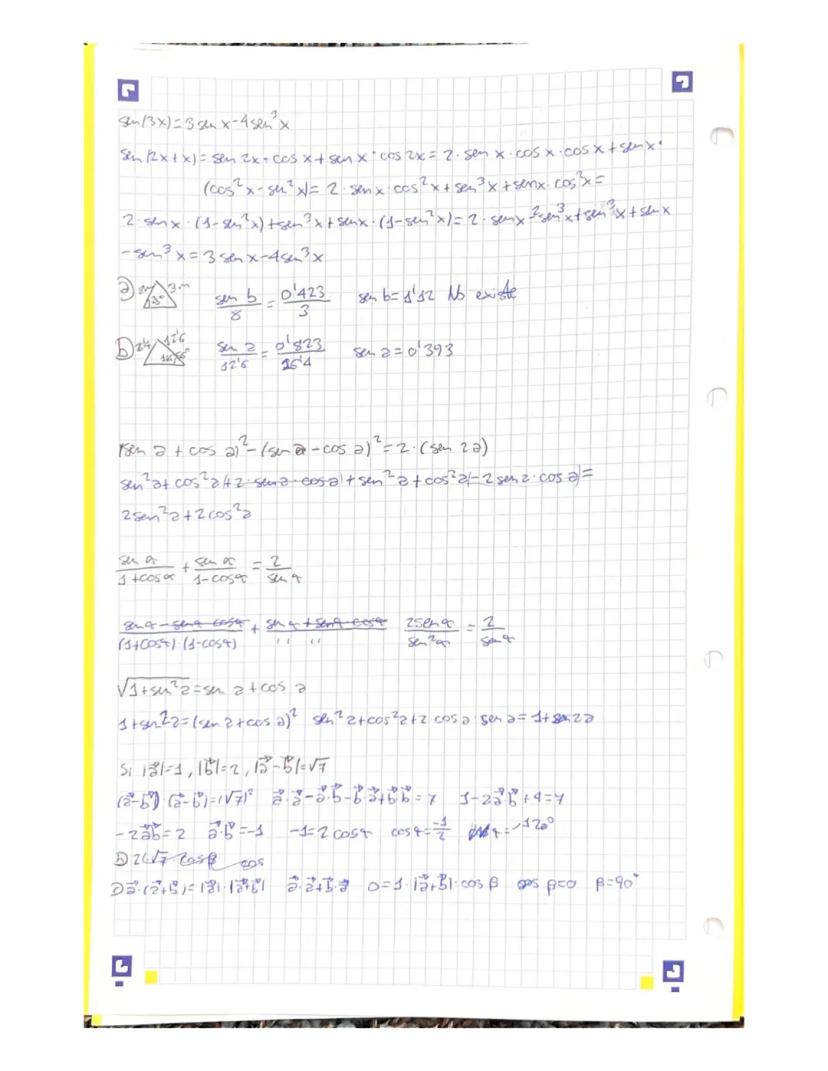 sen(3x)=3 sen x-4 sen³x
sen(2x+x)= sen 2x·cos x+sen x·cos 2x= 2·sen x·cos x·cos x+senx·
(cos²x-sen²x)= 2·senx·cos²x+sen³x+senx·cos²x=
2·senx·(1-sen²x)+sen³x+senx·(1-sen²x)=2·senx-2sen³x+sen³x+senx
-sen³x=3 senx-4sen³x
a) 3m
sen b/8 = 0'423/3 sen b=1'12 No existe
b) 12'6
sen a/12'6 = 0'823/26'4 sen a=0'393
(sen a + cos a)²-(sen a-cos a)²=2·(sen 2a)
sen²a+cos²a+2·sena·cosa+sen²a+cos²a-2sena·cosa=
2sen²a+2cos²a
sen α/1+cosα + sen α/1-cosα = 2/sen α
senα-senα cosα/(1+cosα)·(1-cosα) + senα+senα·cosα/" " 2senα/sen²α = 2/senα
√1+sen²a=sen a+cos a
1+sen²a=(sen a+cos a)² sen²a+cos²a+2 cosa·sena=1+sen2a
Si |a|=1, |b|=2, |a-b|=√7
(a-b)·(a-b)=(√7)² a·a-a·b-b·a+b·b=7 1-2a·b+4=7
-2ab=2 a·b=-1 -1=2cosα cosα=-1/2 α=120°
b) 2(√7 cosβ cos
b) a·(a+b)=|a|·|a+b| a·a+b·a 0=1·|a+b|·cosβ cosβ=0 β=90°